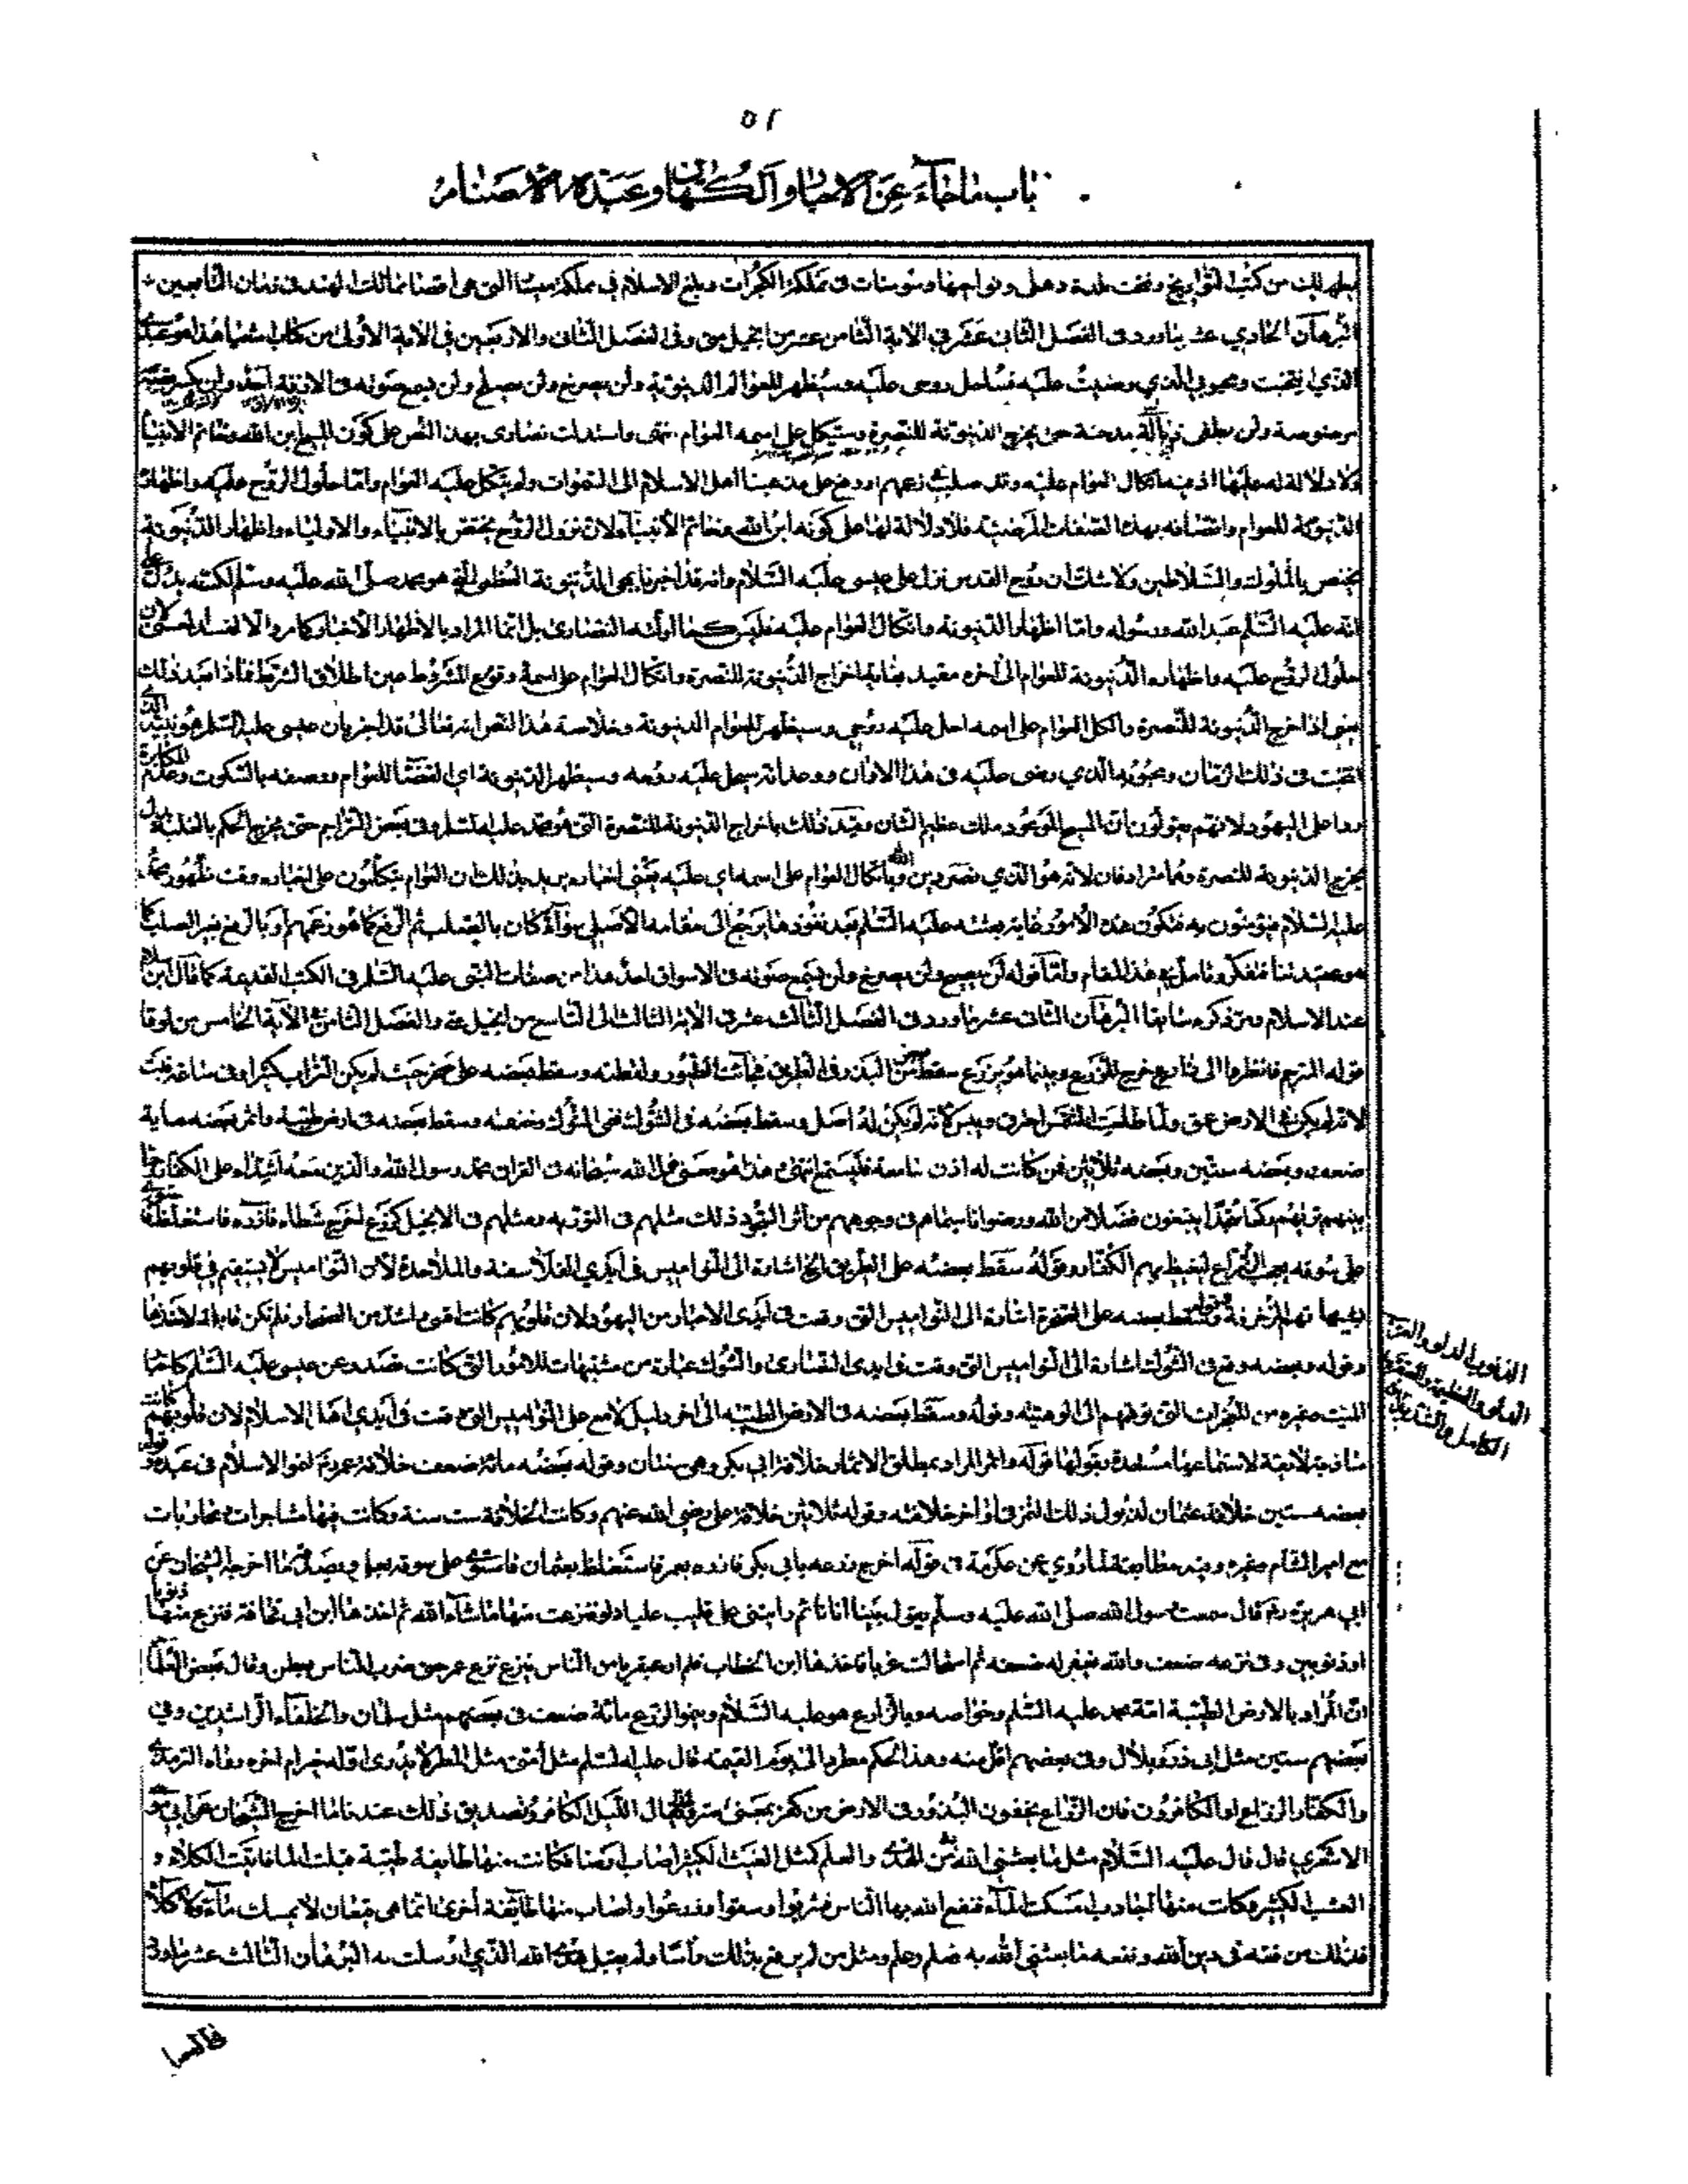 ٥٢
باب ما جاء عن الاحبار والكهان وعبدة الاصنام
من كتب التواريخ وفتحت بلدة دهلي ونواحيها وسومنات في مملكة الكجرات وبلغ الاسلام في مملكة التي هي اقصا ممالك الهند في زمان التابعين
البرهان الحادي عشر ما ورد في الفصل الثاني عشر في الاية الثامن عشر من انجيل متى وفي الفصل الثاني والاربعين في الاية الاولى من كتاب اشعيا هذا هو عبدي
الذي انتجبت ومحبوبي الذي رضيت عليه فساحل روحي عليه وسيظهر للعوالم الدينونة ولن يصرخ ولن يصيح ولن يسمع صوته في الازقة احد ولن يكسر قصبة
مرضوضة ولن يطفى مدخنة حتى يخرج الدينونة للنصرة وستتكل على اسمه العوام انتهى واستدلت نصارى بهذا النص على كون المسيح ابن الله وخاتم الانبيا
ولا دلالة له عليها اذ ما اتكال العوام عليه وقد صلب في زعمهم او رفع على مذهبنا اهل الاسلام الى السموات ولم يتكل عليه العوام واما حلول الروح عليه واظهاره
الدينونة للعوام واتصافه بهذه الصفات المرضية فلا دلالة لها على كونه ابن الله وخاتم الانبياء لان نزول الروح يختص بالانبياء والاولياء واظهار الدينونة
يختص بالملوك والسلاطين ولا شك ان روح القدس نزل على عيسى عليه السلام وانه قد اخبرنا بمجئ الدينونة العظمى التي هو محمد صلى الله عليه وسلم لكنه يدل على
انه عليه السلم عبد الله ورسوله واما اظهار الدينونة واتكال العوام عليه فليس كما اوله النصارى بل انما المراد بالاظهار الاخبار كما مر والا لفسد المعنى لان
حلول الروح عليه واظهاره الدينونة للعوام الى اخره مقيد بغاية اخراج الدينونة للنصرة واتكال العوام على اسمه وقوع المشروط عين اطلاق الشرط فماذا بعد ذلك
يعني اذا اخرج الدينونة للنصرة واتكل العوام على اسمه احل عليه روحي وسيظهر للعوام الدينونة وخلاصة هذا النص انه تعالى قد اخبر بان عيسى عليه السلم هو عبده الذي
انتجبت في ذلك الزمان ومحبوبه الذي رضى عليه في هذا الاوان ووعد انه سيحل عليه روحه وسيظهر الدينونة اي القضا للعوام ووصفه بالسكوت وعدم المكابرة
ردا على اليهود لانهم يقولون ان المسيح الموعود ملك عظيم الشان وقيد ذلك باخراج الدينونة للنصرة التي هو محمد عليه السلم وفي بعض التراجم حتى يخرج الحكم بالغلبة
يخرج الدينونة للنصرة وهما مراد فان لانه هو الذي نصر دين الله وباتكال العوام على اسمه اي عليه يعني اخباره يريد بذلك ان العوام يتكلون على اخباره وقت ظهور محمد
عليه السلام فيؤمنون به فتكون هذه الامور غاية بعثته عليه السلم بعد نفوذها يرجع الى مقامه الاصلي سواء كان بالصلب ثم الرفع كما هو زعمهم او بالرفع بغير الصلب كما
هو عقيدتنا فتفكر وتامل في هذا المقام واما قوله لن يصيح ولن يصرخ ولن يسمع صوته في الاسواق احد هذا من صفات النبي عليه السلم في الكتب القديمة كما قال ابن سلام
عند الاسلام ومر ذكره سابقا البرهان الثاني عشر ما ورد في الفصل الثالث عشر في الاية الثالثة الى التاسع من انجيل متى والفصل الثامن في الاية الخامس من لوقا
قوله المترجم فانظروا الى زارع خرج للزرع وبينما هو يزرع سقط بعض من البذر في الطريق فجائت الطيور ولقطته وسقط بعضه على صخر حيث لم يكن التراب كثيرا وفي ساعة نبت
لانه لم يكن في الارض عمق ولما طلعت الشمس احرق ويبس لانه لم يكن له اصل وسقط بعضه في الشوك فنمى الشوك وخنقه وسقط بعضه في ارض طيبة واثمر بعضه ماية
ضعف وبعضه ستين وبعضه ثلاثين فمن كانت له اذن سامعة فليستمع انتهى هذا هو معنى قول الله سبحانه في القران محمد رسول الله والذين معه اشداء على الكفار رحما
بينهم تريهم ركعا سجدا يبتغون فضلا من الله ورضوانا سيماهم في وجوههم من اثر السجود ذلك مثلهم في التورية ومثلهم في الانجيل كزرع اخرج شطاه فازره فاستغلظ فاستوى
على سوقه يعجب الزراع ليغيظ بهم الكفار وقوله سقط بعضه على الطريق الخ اشارة الى النواميس في ايدي الفلاسفة والملاحدة لان النواميس لا يستقيم في قلوبهم
وقوله سقط بعضه على الصخرة اشارة الى النواميس التي وقعت في ايدى الاحبار من اليهود لان قلوبهم كانت اقسى واشد من الصخار فلم تكن قابلة لانفاذها
وقوله وبعضه وقع في الشوك اشارة الى النواميس التي وقعت في ايدى النصارى والشوك عبارة من مشتبهات للامور التي كانت تصدر عن عيسى عليه السلم كاحيا
الميت وغيره من المعجزات التي توهم الى لوهيته وقوله وسقط بعضه في الارض الطيبة الى اخره دليل لامع على النواميس التي وقعت في ايدي اهل الاسلام لان قلوبهم كانت
لاستماعها مستعدة بقولها قوله واثمر المراد بمطلق الاثمار خلافة ابي بكر وهي سنتان وقوله بعضه مائة ضعف خلافة عمر لنمو الاسلام في عهده وقوله
بعضه ستين خلافة عثمان لذبول ذلك الثمر في اواخر خلافته وقوله ثلاثين خلافة علي رضي الله عنهم وكانت الخلافة ست سنة وكانت فيها مشاجرات ومحاربات
مع امير الشام وغيره وفيه مطابقة لما روي عن عكرمة في قوله اخرج زرعه بابي بكر فازره بعمر فاستغلظ بعثمان فاستوى على سوقه بعلي ويصدقه ما اخرجه الشيخان عن
ابي هريرة رضى قال سمعت رسول الله صلى الله عليه وسلم يقول بينا انا نائم رايتني على قليب عليها دلو فنزعت منها ما شاء الله ثم اخذها ابن ابي قحافة فنزع منها ذنوبا
او ذنوبين وفي نزعه ضعف والله يغفر له ضعفه ثم استحالت غربا فاخذها ابن الخطاب فلم ار عبقريا من الناس ينزع نزع عمر حتى ضرب الناس بعطن وقال بعض العلما
ان المراد بالارض الطيبة امة محمد عليه السلم وخواصه وبالزارع هو عليه السلام وبنمو الزرع مائة ضعف في بعضهم مثل سلمان والخلفاء الراشدين وفي
بعضهم ستين مثل ابي ذر وبلال وفي بعضهم اقل منه وهذا الحكم مطرد الى يوم القيمة قال عليه السلم مثل امتي مثل المطر لا يدرى اوله خير ام اخره رواه الترمذي
والكفار الزراع او الكافرون فان الزراع يخفون البذور في الارض من كفر بمعنى ستر يقال الليل الكافر وتصديق ذلك عندنا ما اخرج الشيخان عن ابي موسى
الاشعري قال قال عليه السلام مثل ما بعثني الله من الهدى والعلم كمثل الغيث الكثير اصاب ارضا فكانت منها طايفة طيبة قبلت الما فانبتت الكلاء و
العشب الكثير وكانت منها اجادب امسكت الماء فنفع الله بها الناس فشربوا وسقوا وزرعوا واصاب منها طايفة اخرى انما هى قيعان لا تمسك ماء ولا تنبت كلاء
فذلك من فقه في دين الله ونفعه ما بعثني الله به فعلم وعلم ومثل من لم يرفع بذلك راسا ولم يقبل هدى الله الذي ارسلت به البرهان الثالث عشر ما ورد في